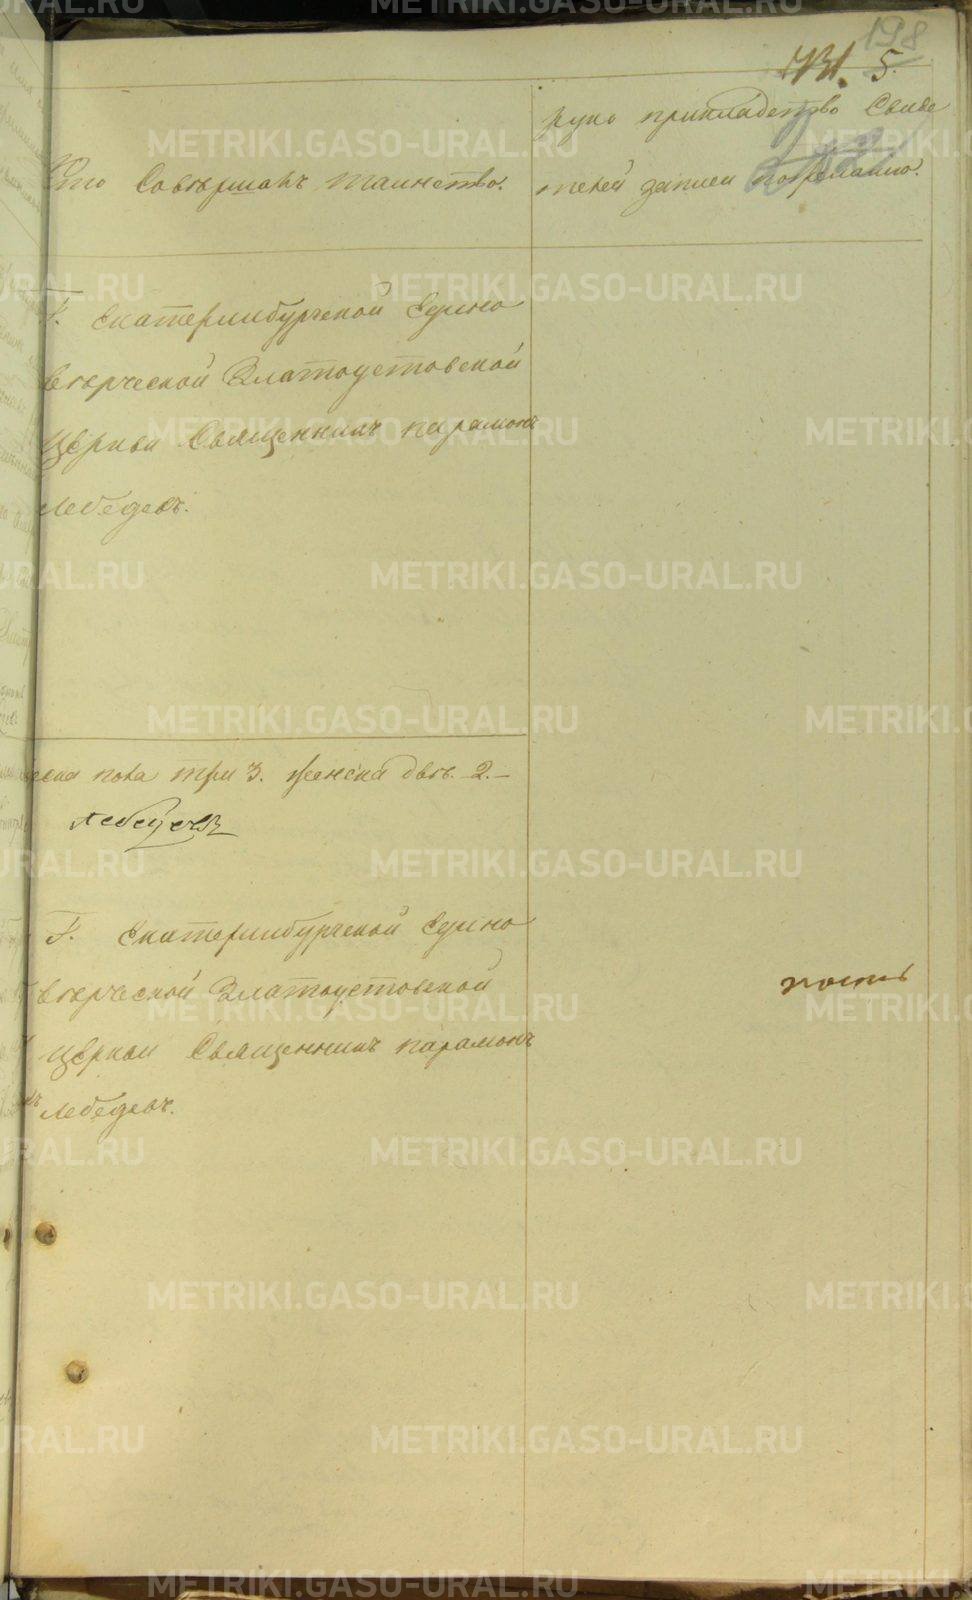 198
5.
Кто Совершалъ таинство.
руко прикладство Свиде
телей записи по желанию.
Г. Екатеринбургской Едино
верческой Златоустовской
Церкви Священникъ парамонъ
Лебедевъ.
пола три 3. женска двѣ. 2.
Лебедевъ
Г. Екатеринбургской Едино
верческой Златоустовской
Церкви Священникъ парамонъ
Лебедевъ.
METRIKI.GASO-URAL.RU